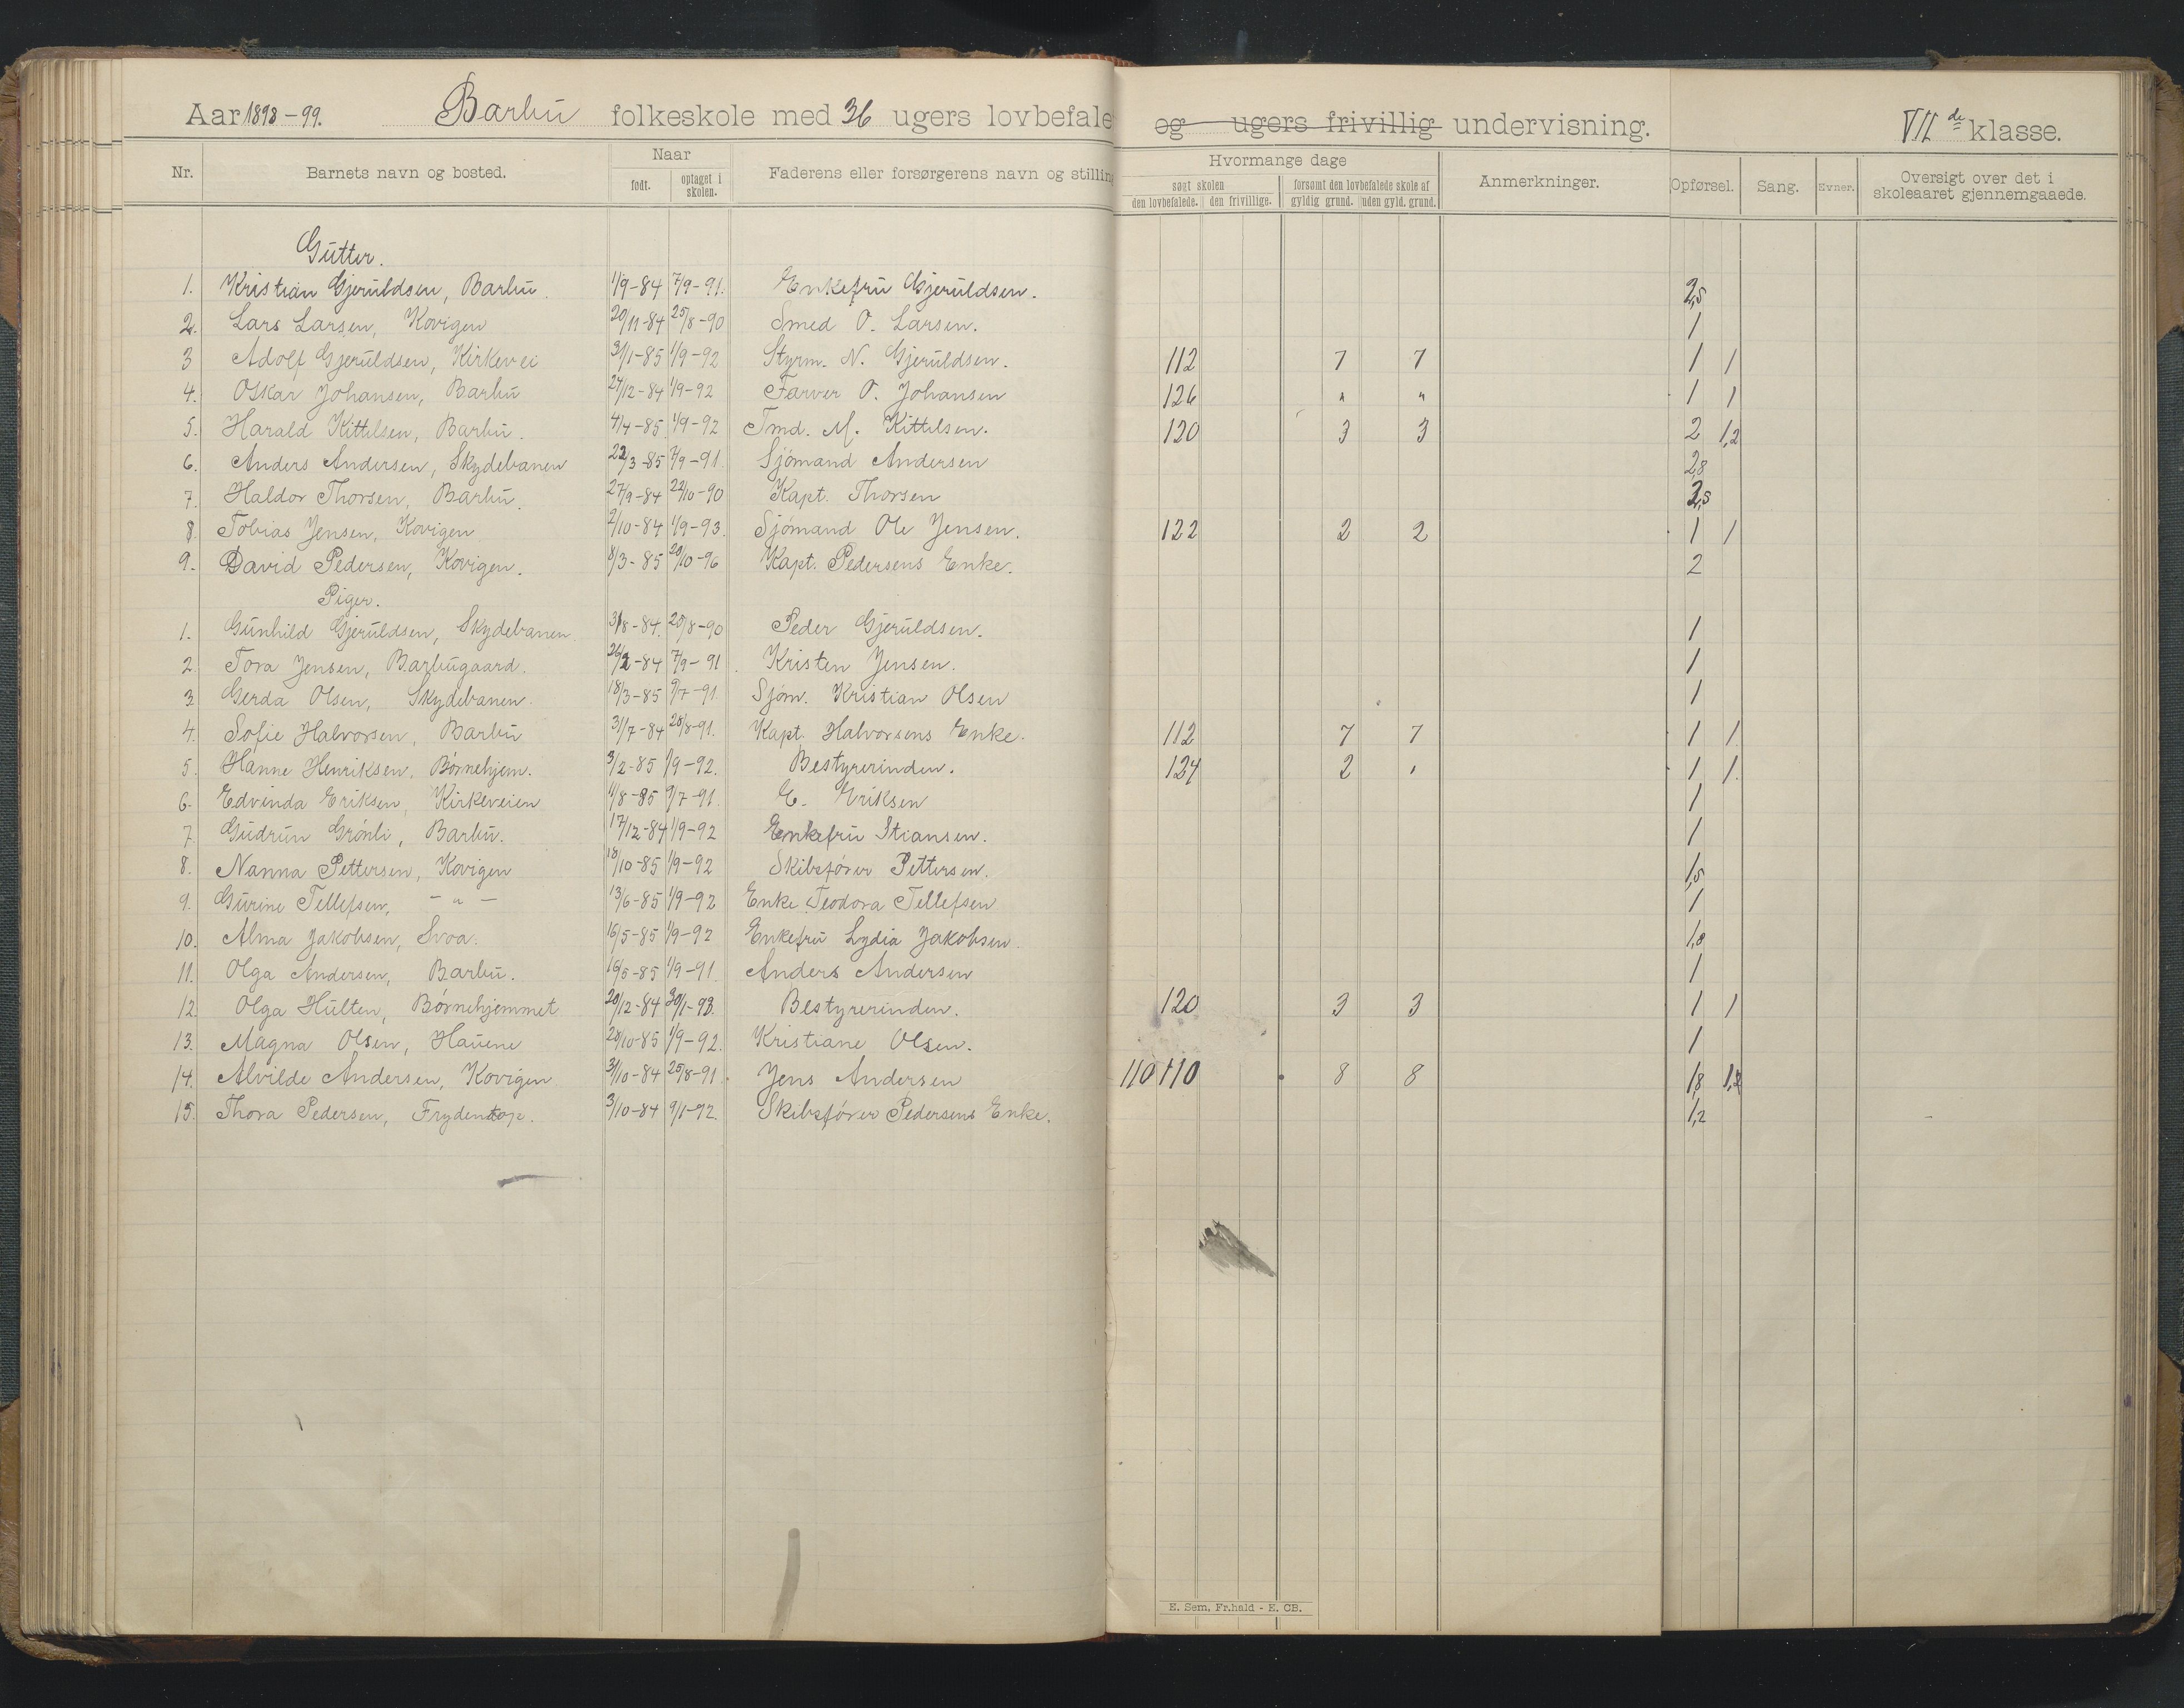 Aar 1898-99. Barbu folkeskole med 36 ugers lovbefale og ugers frivillig undervisning. VII de klasse.
Nr. Barnets navn og bosted. Naar født. optaget i skolen. Faderens eller forsørgerens navn og stilling Hvormange dage søgt skolen den lovbefalede. den frivillige. forsømt den lovbefalede skole af gyldig grund. uden gyld. grund. Anmerkninger. Opførsel. Sang. Evner. Oversigt over det i skoleaaret gjennemgaaede.
Gutter.
1. Kristian Gjeruldsen, Barbu. 1/9-84 7/9-91. Enkefru Gjeruldsen. 2,5
2. Lars Larsen, Kovigen 20/11-84 25/8-90 Smed O. Larsen. 1
3 Adolf Gjeruldsen, Kirkevei 31/1-85 1/9-92 Styrm. N. Gjeruldsen. 112 7 7 1 1
4. Oskar Johansen, Barbu 27/12-84 1/9-92 Farver O. Johansen 126 " " 1 1
5. Harald Kittilsen, Barbu. 4/4-85 1/9-92 Tmd. M. Kittilsen. 120 3 3 2 1,2
6. Anders Andersen, Skydebanen 22/3-85 7/9-91. Sjømand Andersen 2,8
7. Haldor Thorsen, Barbu. 27/9-84 22/10-90 Kapt. Thorsen 2,5
8. Tobias Jensen, Kovigen 2/10-84 1/9-93. Sjømand Ole Jensen. 122 2 2 1 1
9. David Pedersen, Kovigen. 8/3-85 20/10-96 Kapt. Pedersens Enke. 2
Piger.
1. Gunhild Gjeruldsen, Skydebanen. 31/8-84. 25/8-90 Peder Gjeruldsen. 1
2. Tora Jensen, Barbugaard. 26/2-84 7/9-91. Kristen Jensen. 1
3. Gerda Olsen, Skydebanen. 18/3-85 9/7-91. Sjøm. Kristian Olsen 1
4. Sofie Halvorsen, Barbu 31/7-84 28/8-91. Kapt. Halvorsens Enke. 112 7 7 1 1.
5. Hanne Henriksen, Børnehjem. 3/2-85 1/9-92. Bestyrerinden. 124 2 " 1 1.
6. Edvinda Eriksen, Kirkeveien 1/8-85 9/7-91. E. Eriksen 1
7. Gudrun Grønli, Barbu. 17/12-84 1/9-92 Enkefru Stiansen. 1
8. Nanna Pettersen, Kovigen 18/10-85 1/9-92 Skibsfører Pettersen. 1,5
9. Gurine Tellefsen, - " - 13/6-85 1/9-92 Enke Teodora Tellefsen 1
10. Alma Jakobsen, Svoa. 16/5-85 1/9-92 Enkefru Lydia Jakobsen. 1,8
11. Olga Andersen, Barbu. 16/5-85 1/9-91. Anders Andersen 1
12. Olga Hulten, Børnehjemmet 20/12-84 30/1-93. Bestyrerinden. 120 3 3 1 1
13. Magna Olsen, Hauene 28/10-85 1/9-92. Kristiane Olsen. 1
14. Alvilde Andersen, Kovigen 31/10-84 25/8-91. Jens Andersen 110 110 8 8 1,8 1,2
15. Thora Pedersen, Frydentop. 3/10-84 9/1-92. Skibsfører Pedersens Enke. 1,2
E. Sem, Fr.hald - E. CB.